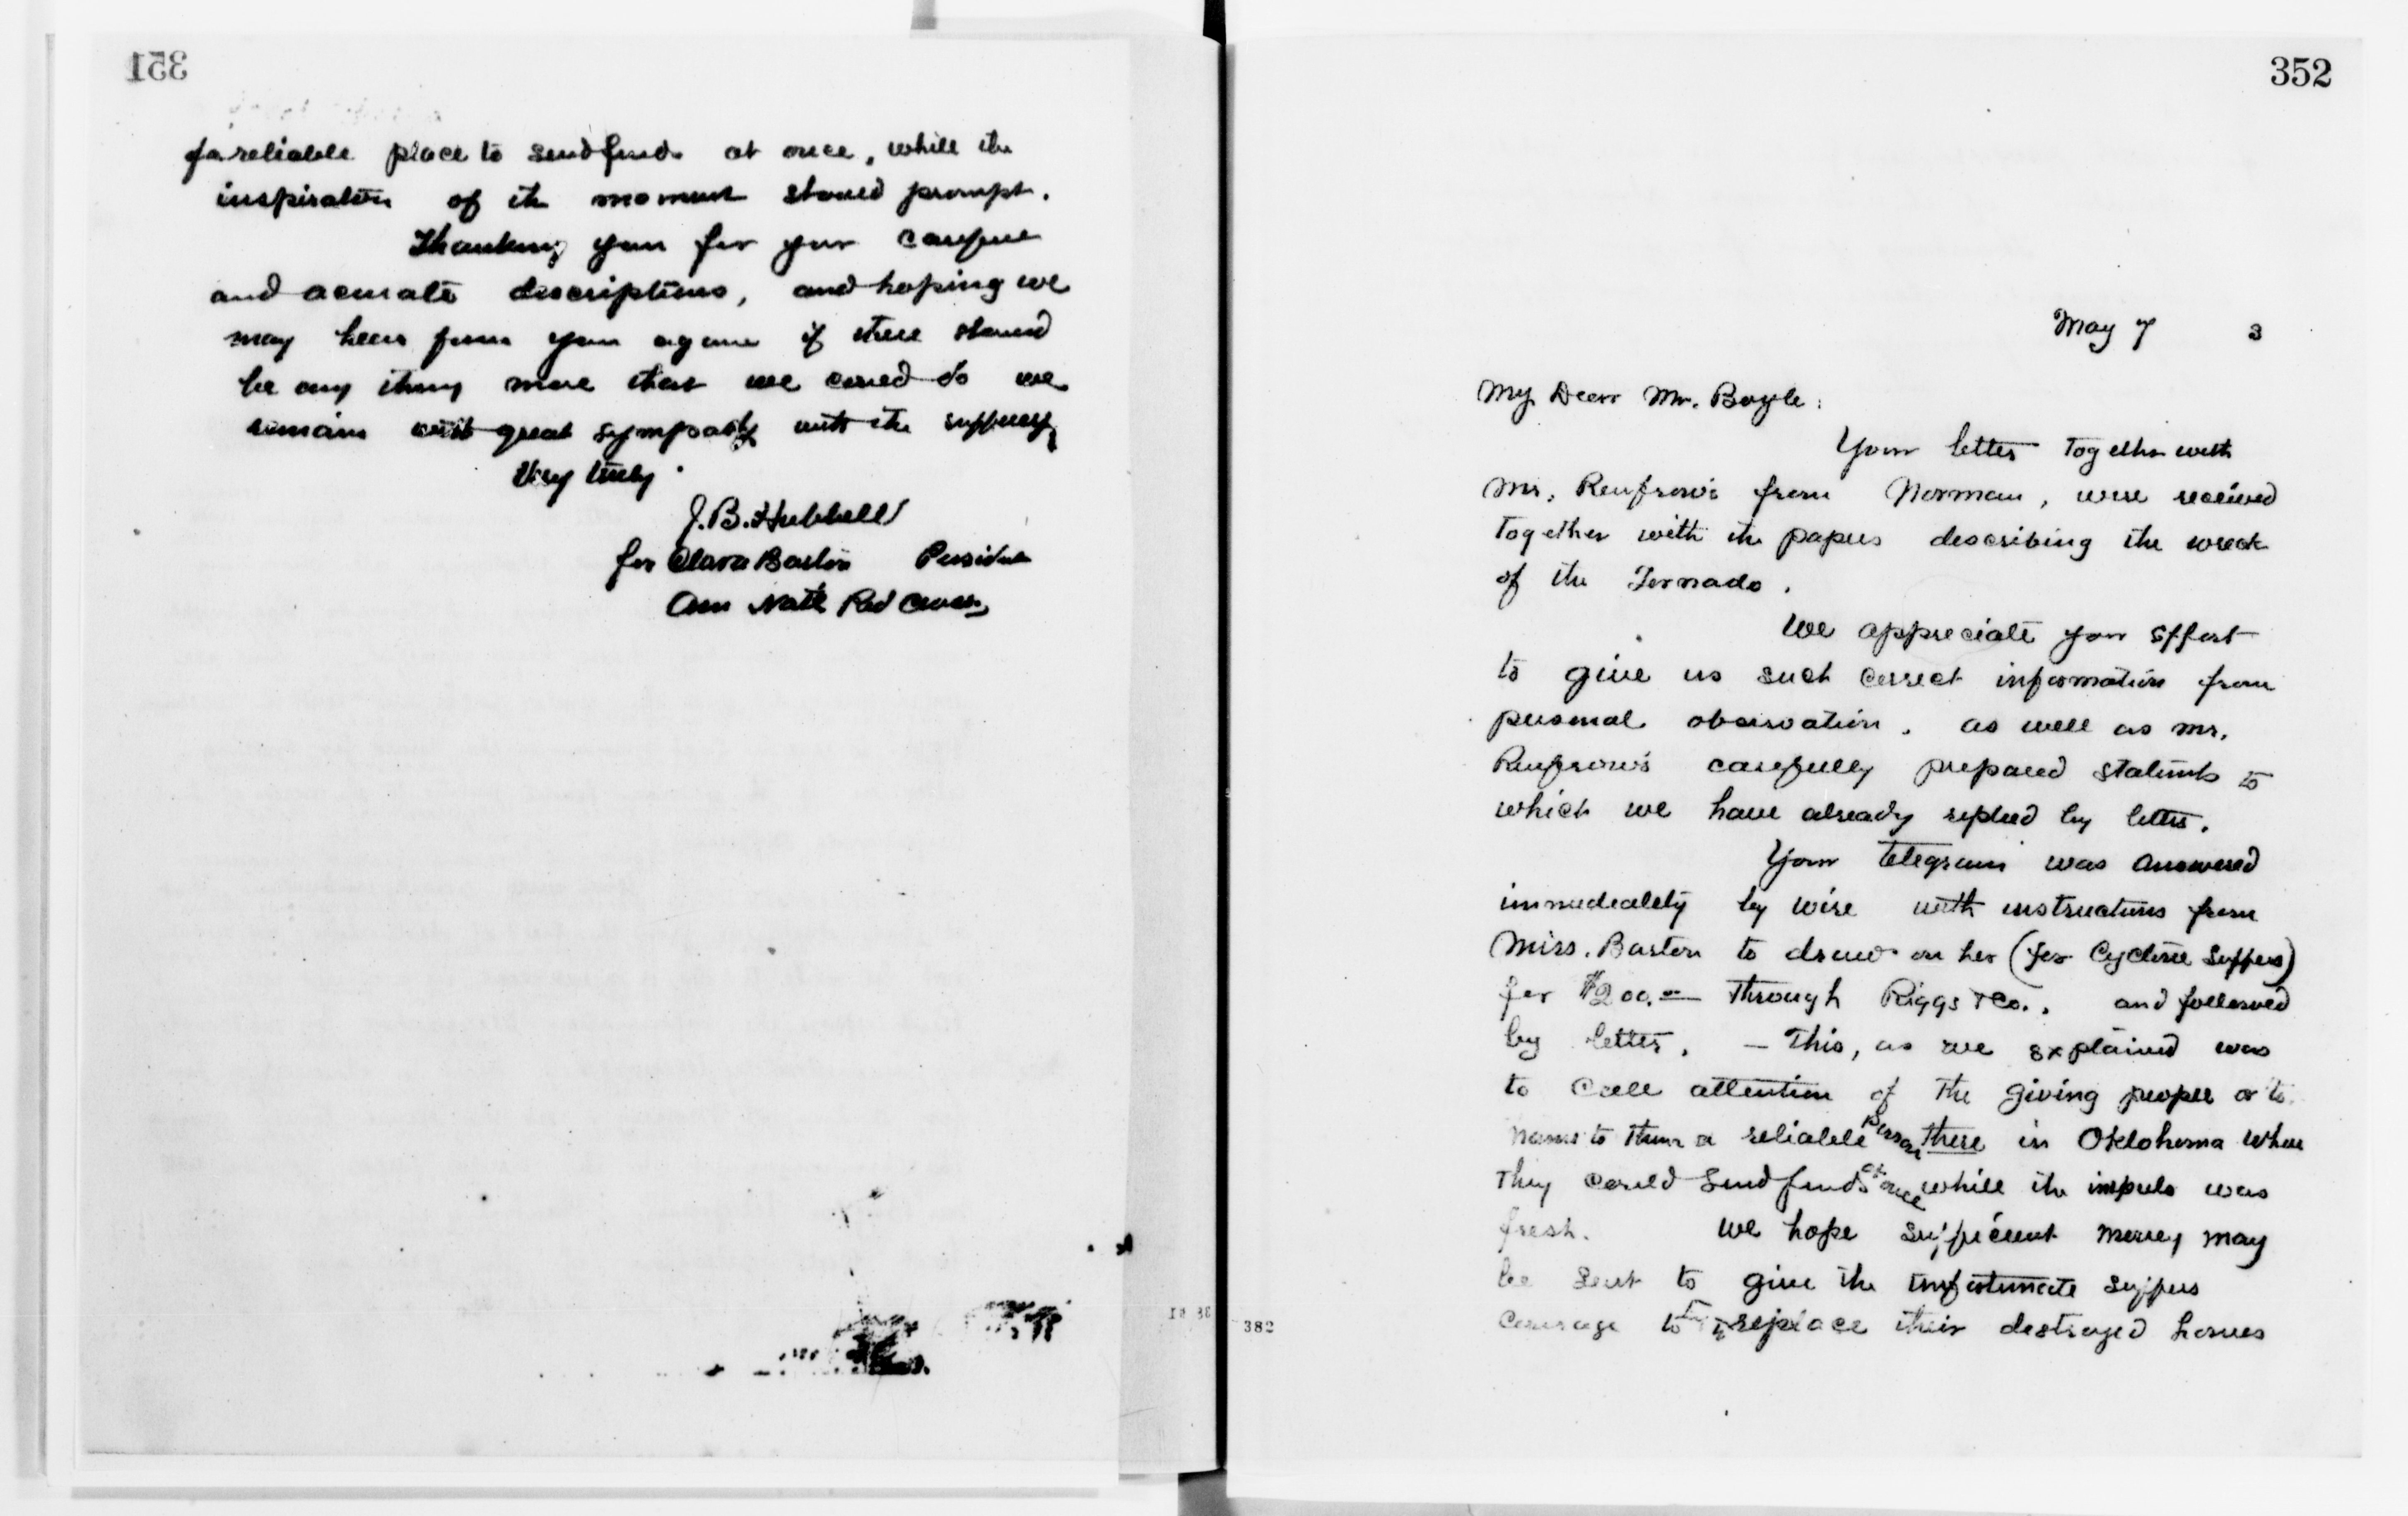 351
of a reliable place to send funds at once, while the
inspiration of the moment should prompt.
Thanking you for your careful
and acurate descriptions, and hoping we
may hear from you again if there should
be any thing more that we could do we
remain with great sympathy with the sufferers,
Very truly
J. B. Hubbell
for Clara Barton President
Am Nat'l Red Cross
18 81
352
May 7 3
My Dear Mr. Boyle:
Your letter together with
Mr. Renfrow's from Norman, were received
together with the papers describing the wreck
of the Tornado.
We appreciate your effort
to give us such correct information from
personal observation. as well as Mr.
Renfrow's carefully prepared statmts to
which we have already replied by letter.
Your telegram was answered
immediately by wire with instructions from
Miss. Barton to draw on her (for Cyclone Suffers)
for $200.00 through Riggs & Co., and followed
by letter. — This, as we explained was
to call attention of the giving people or to
name to them a reliable person there in Oklohoma where
they could send funds at once while the impuls was
fresh. We hope sufficient money may
be sent to give the unfortunate suffers
courage to replace their destroyed homes
382